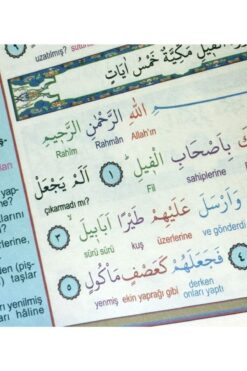 uzatılmış?
الفيل مَكِّيَّةٌ خَمْسُ اٰيَاتٍ
اللّٰهِ الرَّحْمٰنِ الرَّحٖيمِ
Allah'ın Rahmân Rahîm
بِاَصْحَابِ الْفٖيلِ ﴿١﴾ اَلَمْ يَجْعَلْ
sahiplerine Fil çıkarmadı mı?
وَاَرْسَلَ عَلَيْهِمْ طَيْرًا اَبَابٖيلَ ﴿٣﴾
ve gönderdi üzerlerine kuş sürü sürü
﴿٤﴾ فَجَعَلَهُمْ كَعَصْفٍ مَأْكُولٍ ﴿٥﴾
derken onları yaptı ekin yaprağı gibi yenmiş
yap-
me?
larını
erine,
den (piş-
) taşlar
rı yenilmiş
ları hâline